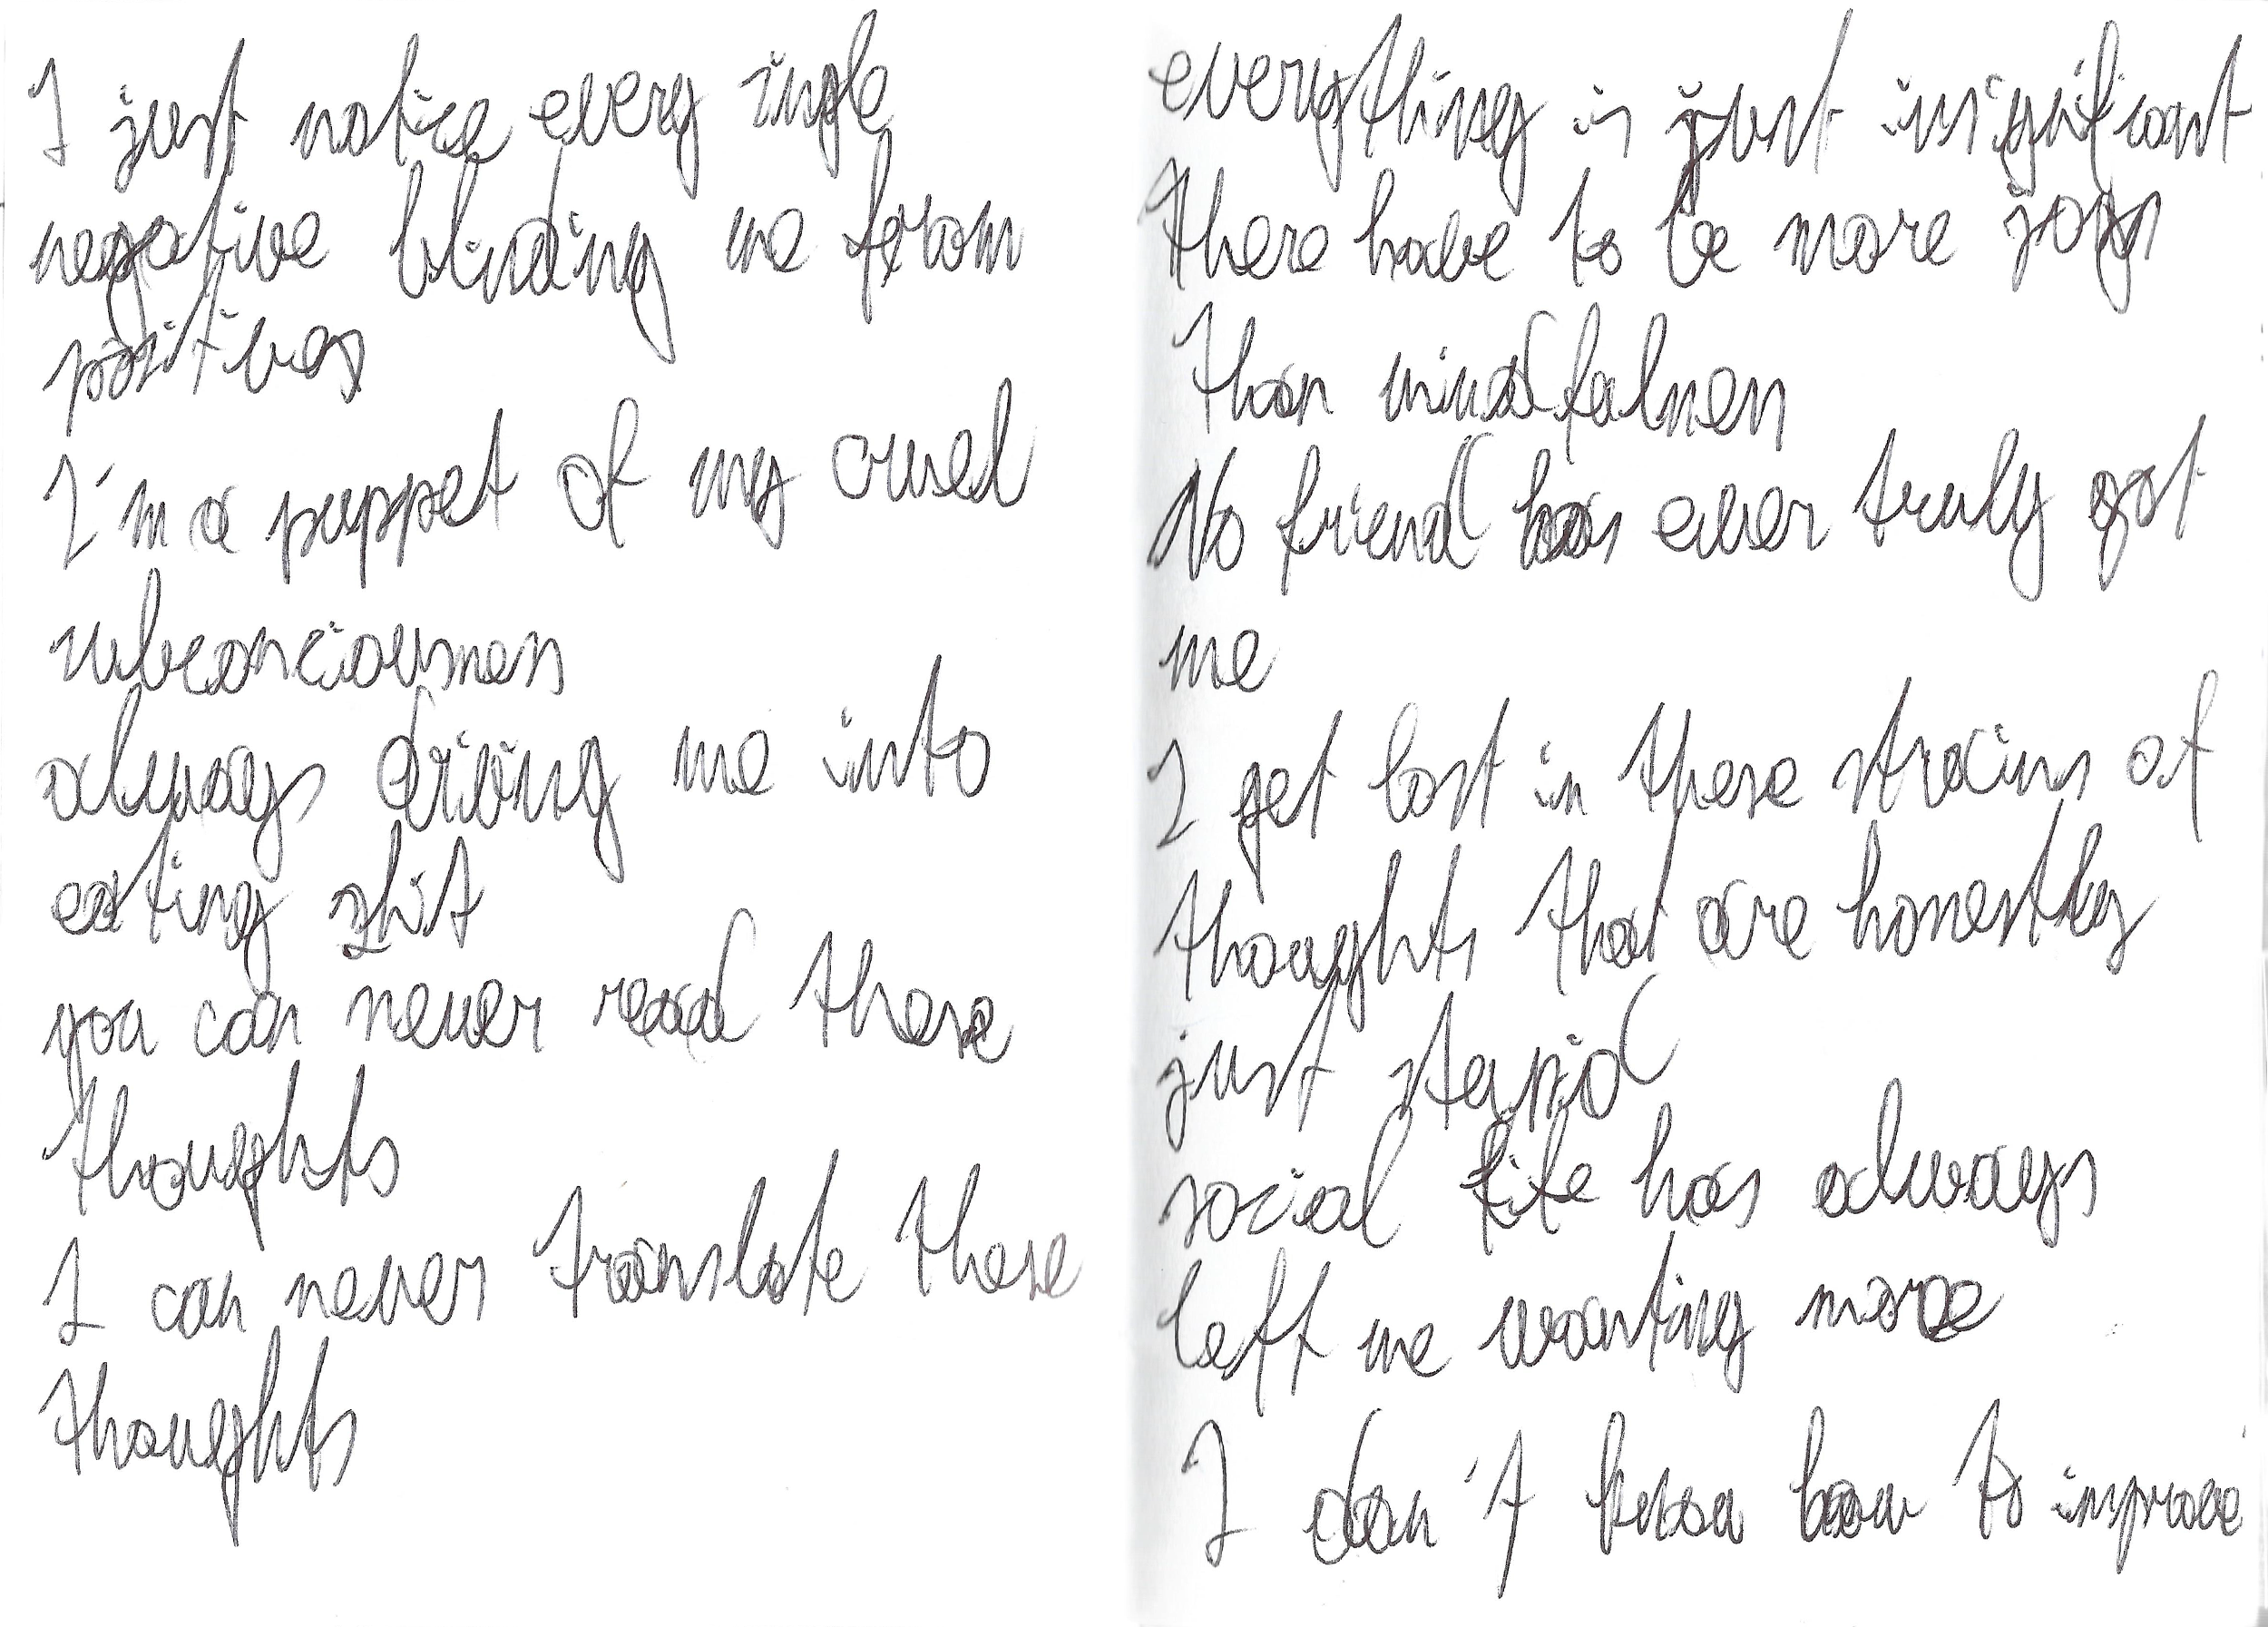 I just notice every single
negative blinding me from
positives
I'm a puppet of my cruel
subconsciousness
always driving me into
eating shit
you can never read these
thoughts
I can never translate these
thoughts
everything is just insignificant
there have to be more joys
than mindfulness
No friend has ever truly got
me
I get lost in these strains of
thoughts that are honestly
just stupid
social life has always
left me wanting more
I don't know how to improve